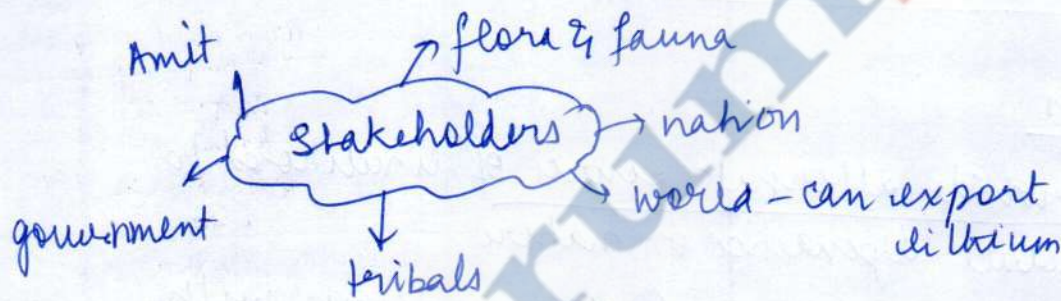 Amit
flora & fauna
Stakeholders
nation
world - can export
lithium
government
tribals
rum